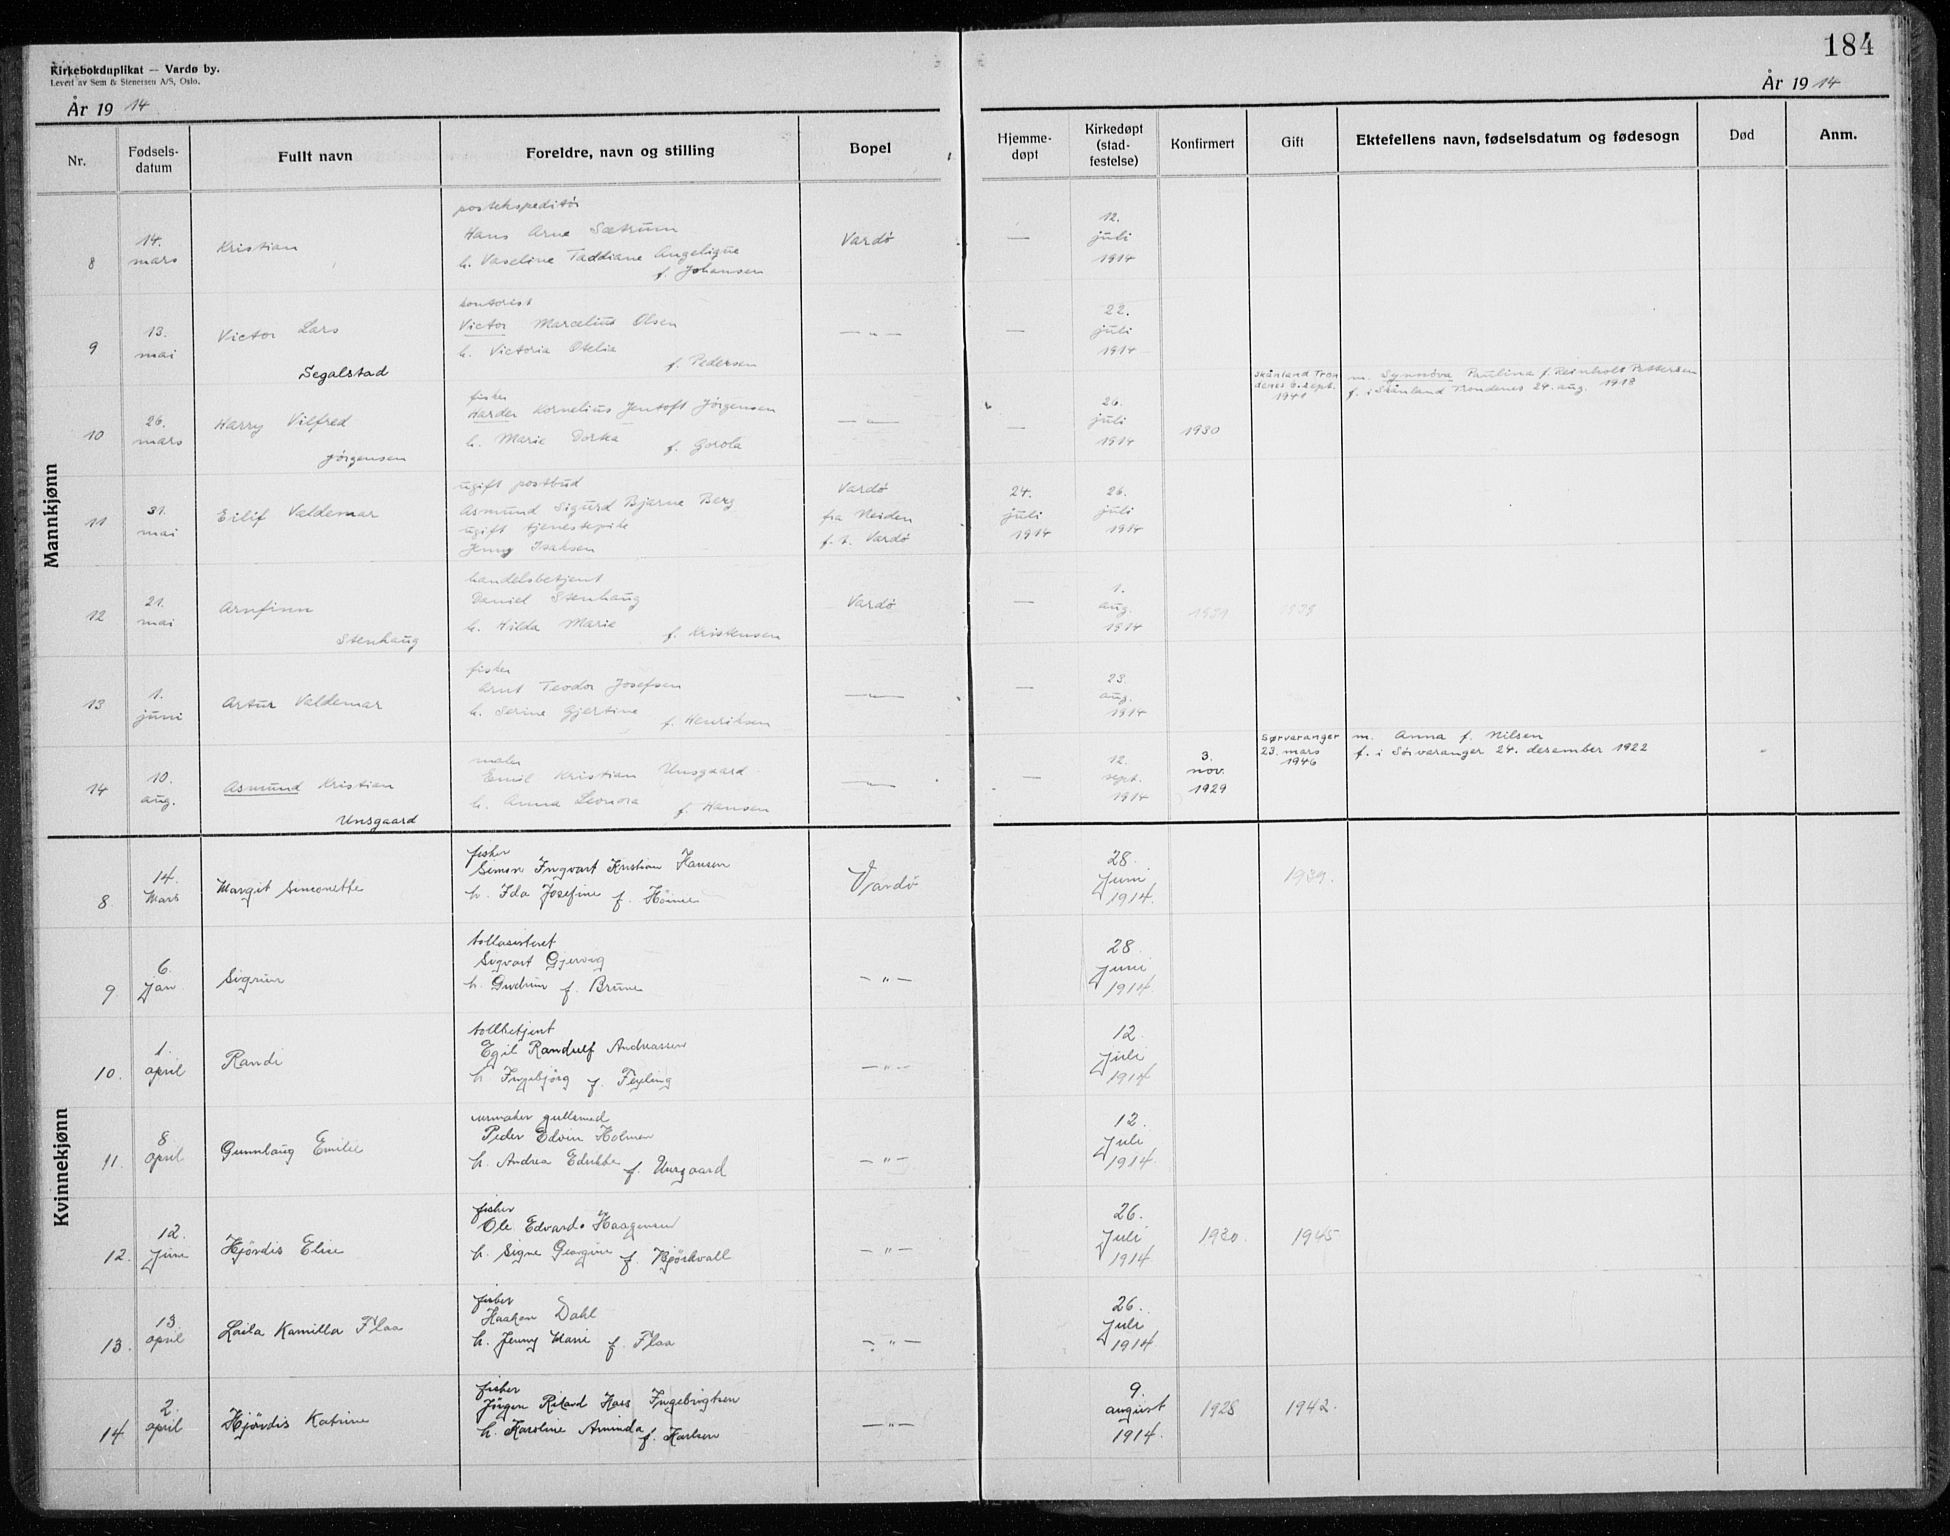 184
Kirkebokduplikat — Vardø by.
Levert av Sem & Stenersen A/S, Oslo.
År 19 14
År 19 14
Nr.
Fødsels-
datum
Fullt navn
Foreldre, navn og stilling
Bopel
Hjemme-
døpt
Kirkedøpt
(stad-
festelse)
Konfirmert
Gift
Ektefellens navn, fødselsdatum og fødesogn
Død
Anm.
Mannkjønn
8
14.
mars
Kristian
postekspeditör
Hans Arne Sætrum
h. Vaseline Taddiane Angelique
f. Johansen
Vardö
—
12.
juli
1914
9
13.
mai
Victor Lars
Segalstad
kontorist
Victor Marcelius Olsen
h. Victoria Otelia
f. Pedersen
— „ —
—
22.
juli
1914
Skånland Tron
denes 6. sept.
1941
m. Synnöva Paulina f. Reinholt Pettersen
f. i Skånland Trondenes 24. aug. 1918
10
26.
mars
Harry Vilfred
Jörgensen
fisker
Harder Kornelius Jentoft Jörgensen
h. Marie Dorka f. Gorola
— „ —
—
26.
juli
1914
1930
11
31.
mai
Eilif Valdemar
ugift postbud
Asmund Sigurd Bjarne Berg
ugift tjenestepike
Jenny Isaksen
Vardö
fra Neiden
f.t. Vardö
24.
juli
1914
26.
juli
1914
12
21.
mai
Arnfinn
Stenhaug
handelsbetjent
Daniel Stenhaug
h. Hilda Marie f. Kristensen
Vardö
—
1.
aug.
1914
1939
13
1.
juni
Artur Valdemar
fisker
Arnt Teodor Josefsen
h. Serine Gjertine f. Henriksen
— „ —
—
23.
aug.
1914
14
10.
aug.
Asmund Kristian
Unsgaard
maler
Emil Kristian Unsgaard
h. Anna Leonora f. Hansen
— „ —
—
12.
sept.
1914
3.
nov.
1929
Sørvaranger
23. mars
1946
m. Anna f. Nilsen
f. i Sörvaranger 24. desember 1922
Kvinnekjønn
8.
14.
Mars
Margit Simonette
fisker
Simon Ingvart Kristian Hansen
h. Ida Josefine f.
Vardö
28.
Juni
1914.
1939.
9
6.
Jan.
Sigrun
tollassistent
Sigvart Gjervig
h. Gudrun f. Brune
— „ —
28.
Juni
1914.
10.
1.
april
Randi
tollbetjent
Egil Randulf Andreassen
h. Ingebjörg f. Fexling
— „ —
12.
Juli
1914
11.
8
april
Gunnlaug Emilie
urmaker gullsmed
Peder Edvin Holmen
h. Andrea f. Unsgaard
— „ —
12.
Juli
1914.
12.
12.
Juni
Hjördis Elise
fisker
Ole Edvard Haagensen
h. Signe Georgine f. Björkvall
— „ —
26.
Juli
1914
1930.
1945.
13.
13
april
Laila Kamilla Flaa
fisker
Haakon Dahl
h. Jenny Marie f. Flaa
— „ —
26.
Juli
1914
14
2.
april
Hjördis Katrine
fisker
Jörgen Rikard Hans Ingebrigtsen
h. Karoline Aminda f. Karlsen
— „ —
9.
august
1914.
1928
1942.